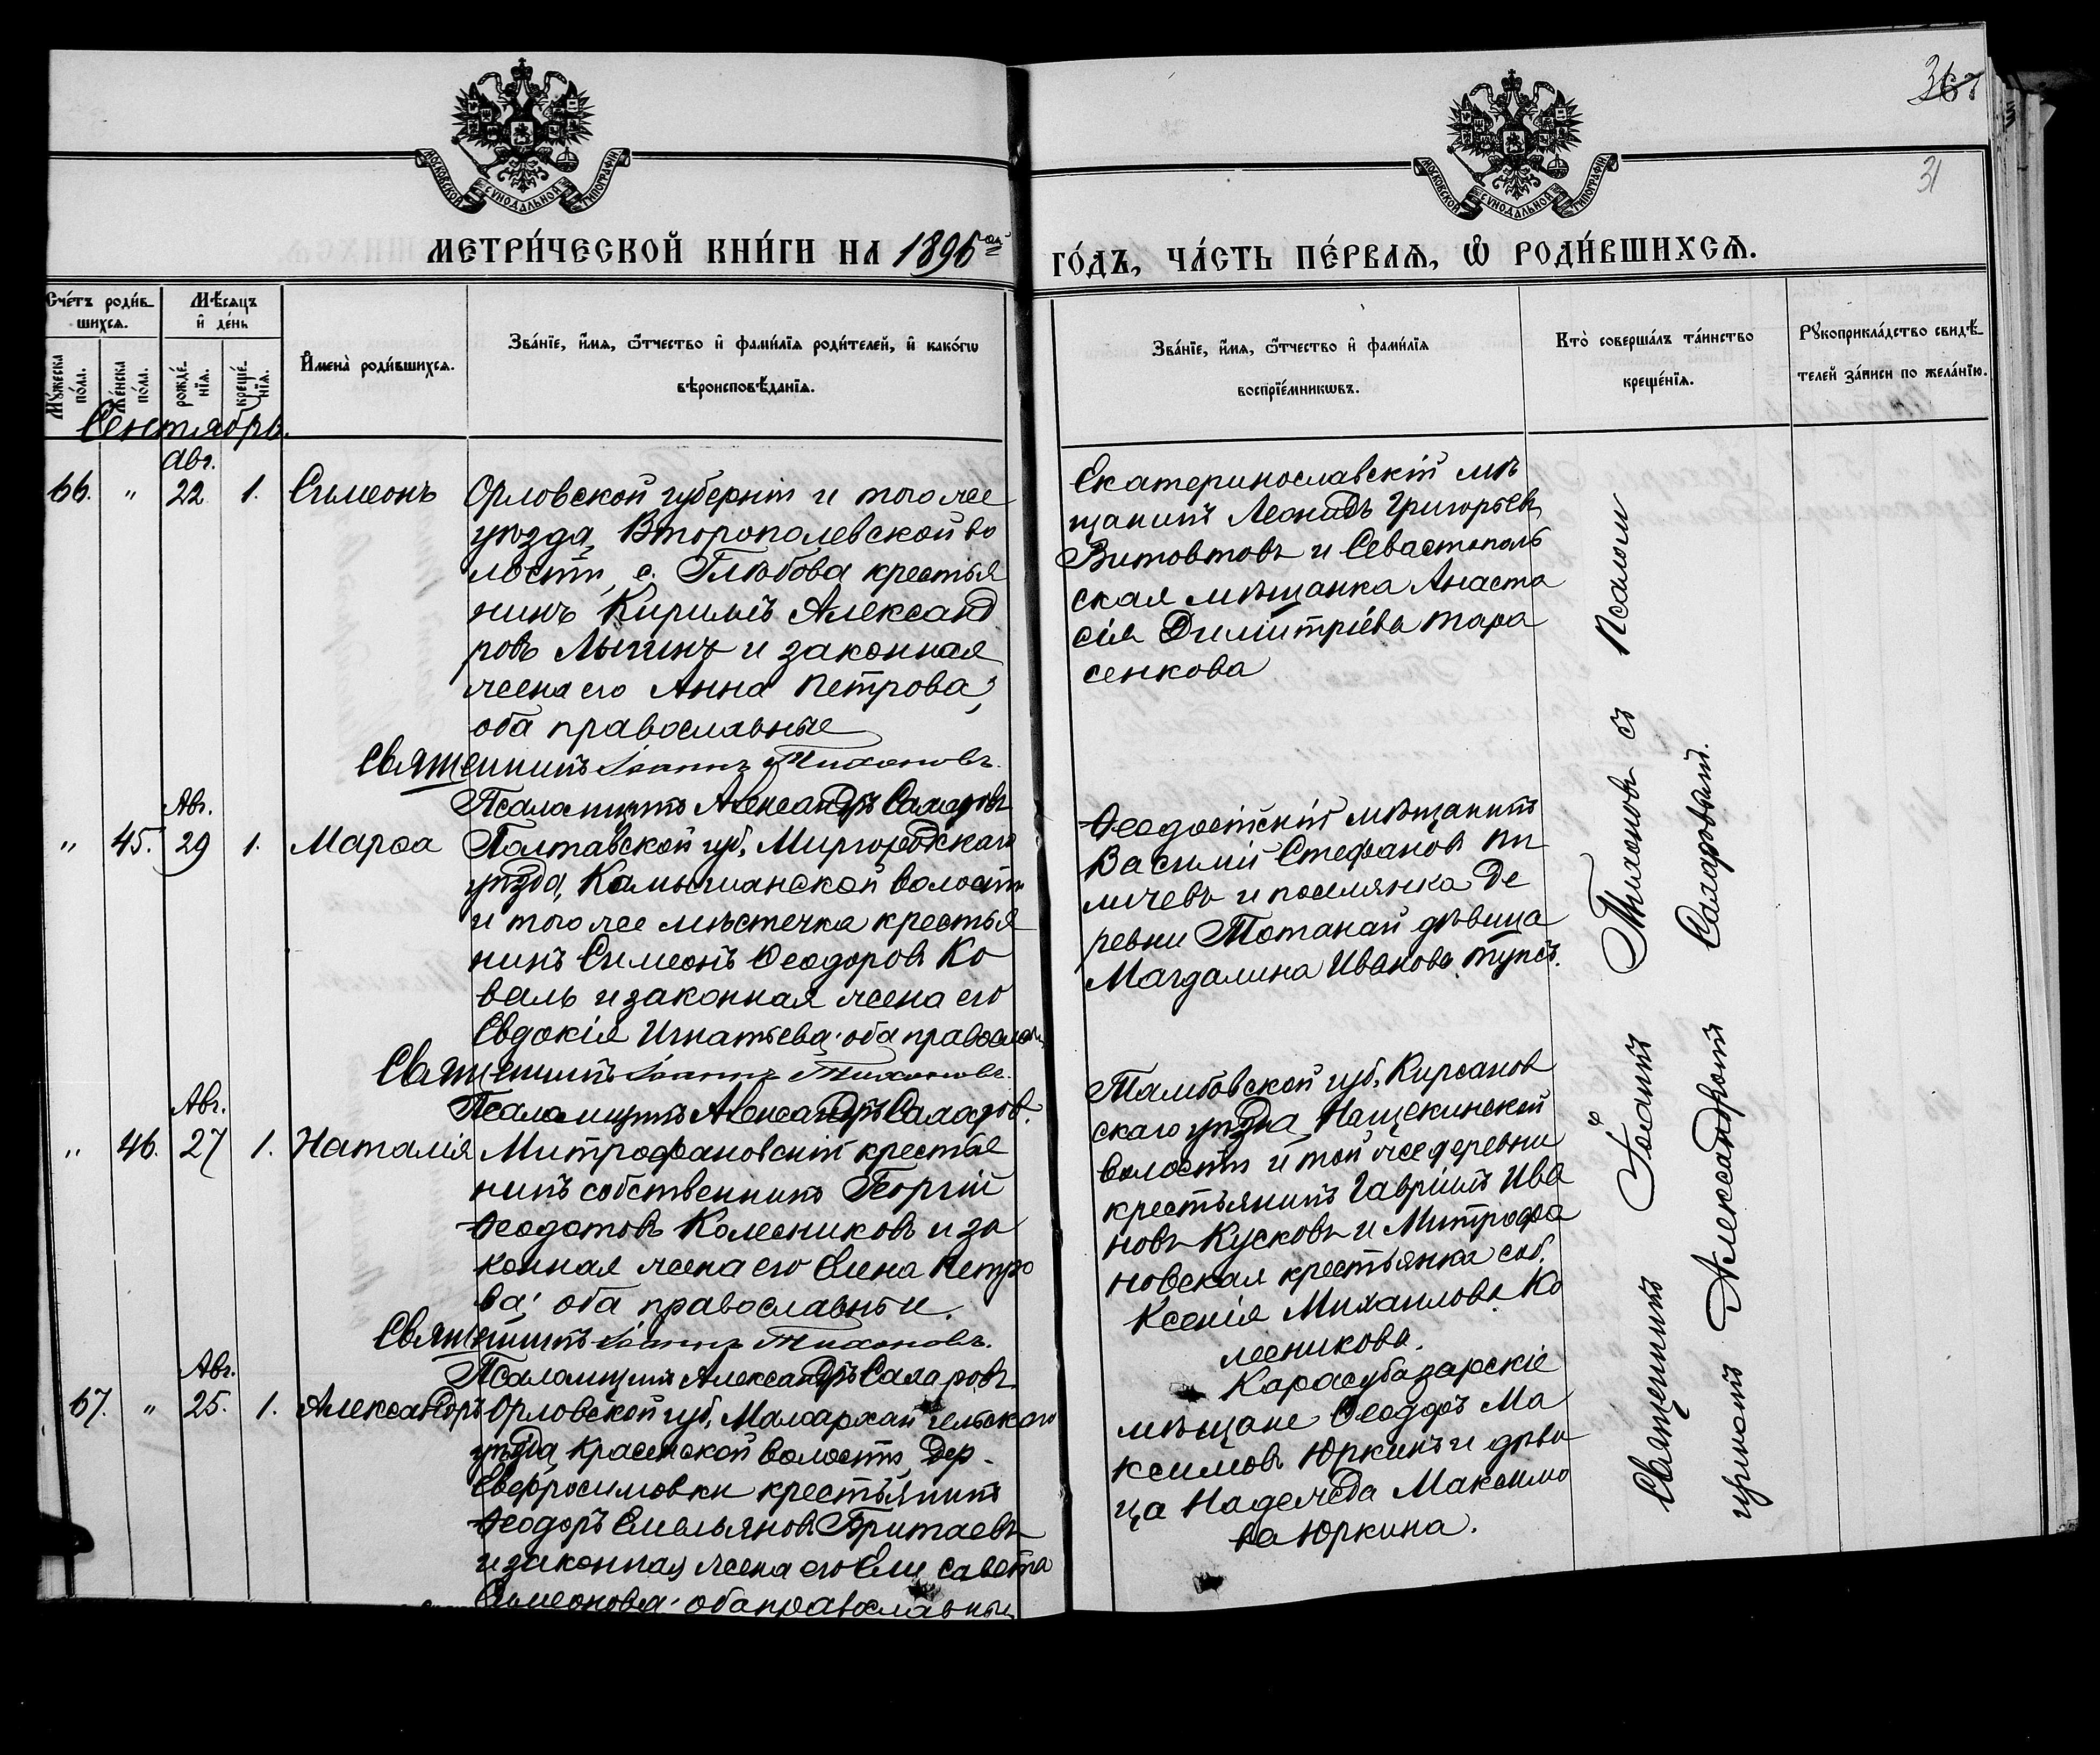 367
31
МОСКОВСКОЙ СУНОДАЛЬНОЙ ТИПОГРАФІИ
МОСКОВСКОЙ СУНОДАЛЬНОЙ ТИПОГРАФІИ
МЕТРИ́ЧЕСКОЙ КНИ́ГИ НА 1896ой
ГО́ДЪ, ЧА́СТЬ ПЕ́РВАѦ, Ѡ҆ РОДИ́ВШИХСѦ.
Сче́тъ роди́в-
шихсѧ.
Мѣ́сѧцъ
и҆ де́нь
Мꙋ́жеска по́ла.
Же́нска по́ла.
рожде́-
нїѧ.
креще́-
нїѧ.
И҆мена̀ роди́вшихсѧ.
Зва́нїе, и҆́мѧ, ѻ҆́тчество и҆ фами́лїѧ роди́телей, и҆ како́гѡ
вѣроисповѣ́данїѧ.
Зва́нїе, и҆́мѧ, ѻ҆́тчество и҆ фами́лїѧ
воспрїе́мникѡвъ.
Кто̀ соверша́лъ та́инство
креще́нїѧ.
Рꙋкоприкла́дство свидѣ́-
телей за́писи по жела́нїю.
Сентябрь.
Авг.
66. " 22 1. Симеонъ
Орловской губерніи и того же
уѣзда, Второполевской во
лости, с. Глѣбова крестья
нинъ Кириллъ Александ
ровъ Лыгинъ и законная
жена его Анна Петрова;
оба православные
Священникъ Іоаннъ Тихоновъ.
Псаломщикъ Александръ
Екатеринославскій мѣ
щанинъ Леонидъ Григорьев
Витовтовъ и Севастополь
ская мѣщанка Анаста
сія Димитріева Тара
сенкова
Авг.
" 45. 29 1. Марѳа
Полтавской губ. Миргородскаго
уѣзда, Камышанской волости
и того же мѣстечка крестья
нинъ Симеонъ Ѳеодоровъ Ко
валь и законная жена его
Евдокія Игнатьева; оба православн.
Священникъ Іоаннъ Тихоновъ.
Псаломщикъ Александръ
Ѳеодосійскій мѣщанинъ
Василій Стефановъ Пи
личевъ и поселянка де
ревни дѣвица
Магдалина Иванова
Авг.
" 46. 27 1. Наталія
Митрофановскій крестья
нинъ собственникъ Георгій
Ѳеодотовъ Колесниковъ и за
конная жена его Елена Петро
ва; оба православные.
Священникъ Іоаннъ Тихоновъ.
Псаломщикъ Александръ
Тамбовской губ. Кирсанов
скаго уѣзда, Нащекинской
волости и той же деревни
крестьянинъ Гавріилъ Ива
новъ Кусковъ и Митрофа
новская крестьянка соб.
Ксенія Михаилова Ко
лесникова.
Авг.
67. " 25. 1. Александръ
Орловской губ. Малоархангельскаго
уѣзда, волости, дер.
Евфросимовки крестьянинъ
Ѳеодоръ Емельяновъ
и законная жена его Елисавета
Симеонова; оба православные
Карасубазарскіе
мѣщане Ѳеодоръ Ма
ксимовъ Юркинъ и дѣви
ца Надежда Максимо
ва Юркина.
Священникъ Іоаннъ Тихоновъ съ Псалом
щикомъ Александромъ